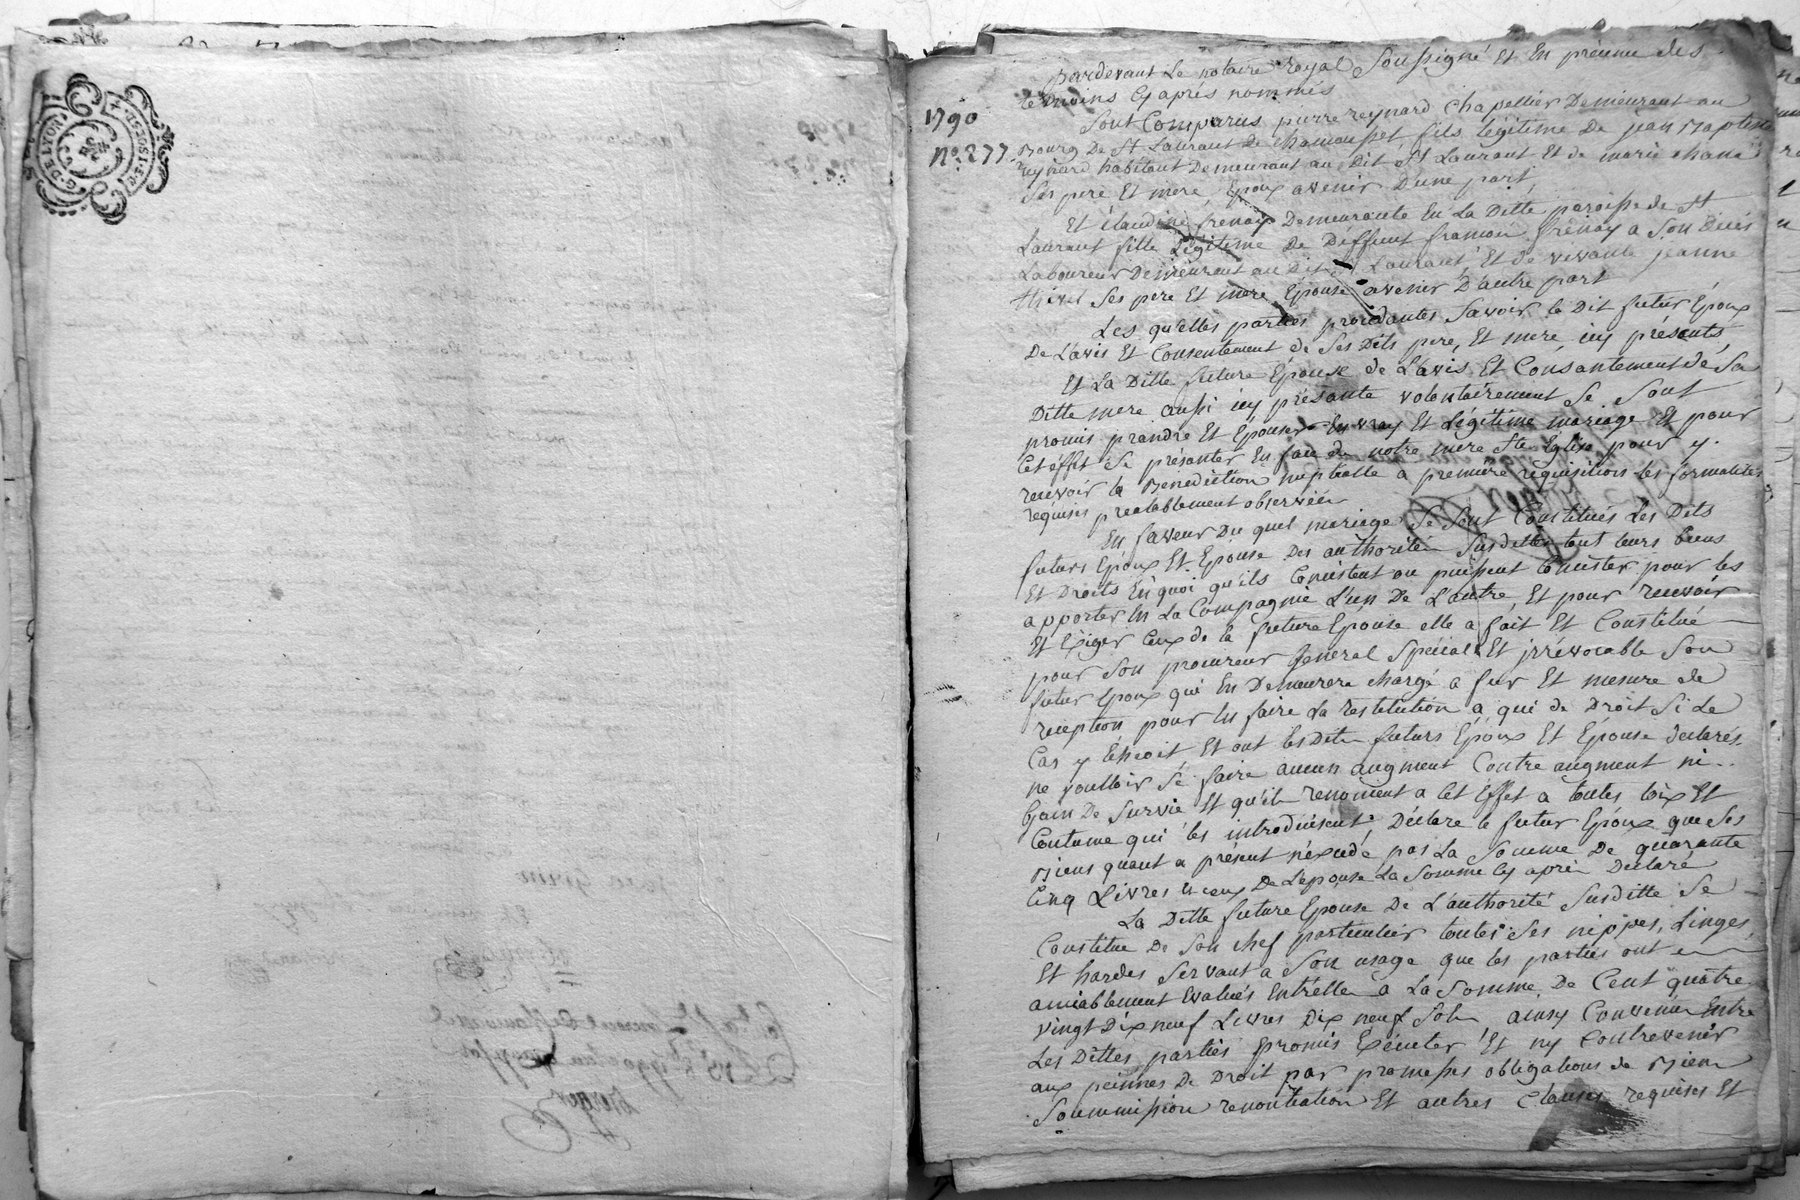 G. DE LYON
2. SOLS. 4. D
1790
N.º 277.
pardevant Le notaire royal Soussigné Et En présence des
témoins Cy après nommés
Sont Comparus pierre reynard chapellier Demeurant au
Bourg De St Laurant de chamousset fils légitime De jean Baptiste
reynard habitant Demeurant au Dit St Laurant Et de marie
Ses pere Et mere, Epoux avenir D'une part,
Et Claudine frenay Demeurante En La Ditte paroisse de St
Laurant fille Légitime De Deffunt françois frénay a Son Décès
Laboureur Demeurant au Dit St Laurant Et de vivante jeanne
Ses pere Et mere Epouse avenir D'autre part
Les qu'elles parties procédantes Savoir le Dit futur Epoux
De L'avis Et Consentement de Ses Dits pere, Et mere icy présents,
Et La Ditte future Epouse de L'avis Et Consantement de Sa
Ditte mere aussi icy présante volontairement Se Sont
promis praindre Et Epouser En vray Et Légitime mariage Et pour
Cet éffet Se présanter En face de notre mere Ste Eglise pour y
recevoir la Benediction nuptialle a premiere requisition les formalités
requises préalablement observéés
En faveur Du quel mariage Se Sont Constitués Les Dits
futurs Epoux Et Epouse Des authorités Susdittes tout leurs biens
Et Droits En quoi qu'ils Consistent ou puissent Consister pour les
apporter En La Compagnie L'un De L'autre, Et pour recevoir
Et Exiger Ceux de la future Epouse elle a fait Et Constitué
pour Son procureur general Spécial Et irrévocable Son
futur Epoux qui En Demeurera chargé a fur Et mesure de
reception pour En faire La restitution a qui de Droit Si Le
Cas y Echeoit, Et ont lesDits futurs Epoux Et Epouse declarés
ne voulloir Se faire aucun augment Contre augment ni
Gain De Survie Et qu'ils renoncent a Cet Effet a toutes loix Et
Coutume qui les introduisent, Déclare le futur Epoux que Ses
Biens quant a présent n'éxcede pas La Somme De quarante
Cinq Livres Et ceux De L'epouse La Somme Cy après Déclaré
La Ditte future Epouse De L'authorité Susditte Se
Constitue De Son chef particulier toutes Ses nippes, Linges,
Et hardes Servant a Son usage que les parties ont
amiablement Evalués Entrélles a La Somme De Cent quatre
vingt Dix neuf Livres Dix neuf Sols ainsy Convenu Entre
Les Dittes parties promis Exécuter Et ny Contrevenir
aux peinnes De Droit par promesses obligations de Biens
Soummission renontiation Et autres Clauses requises Et